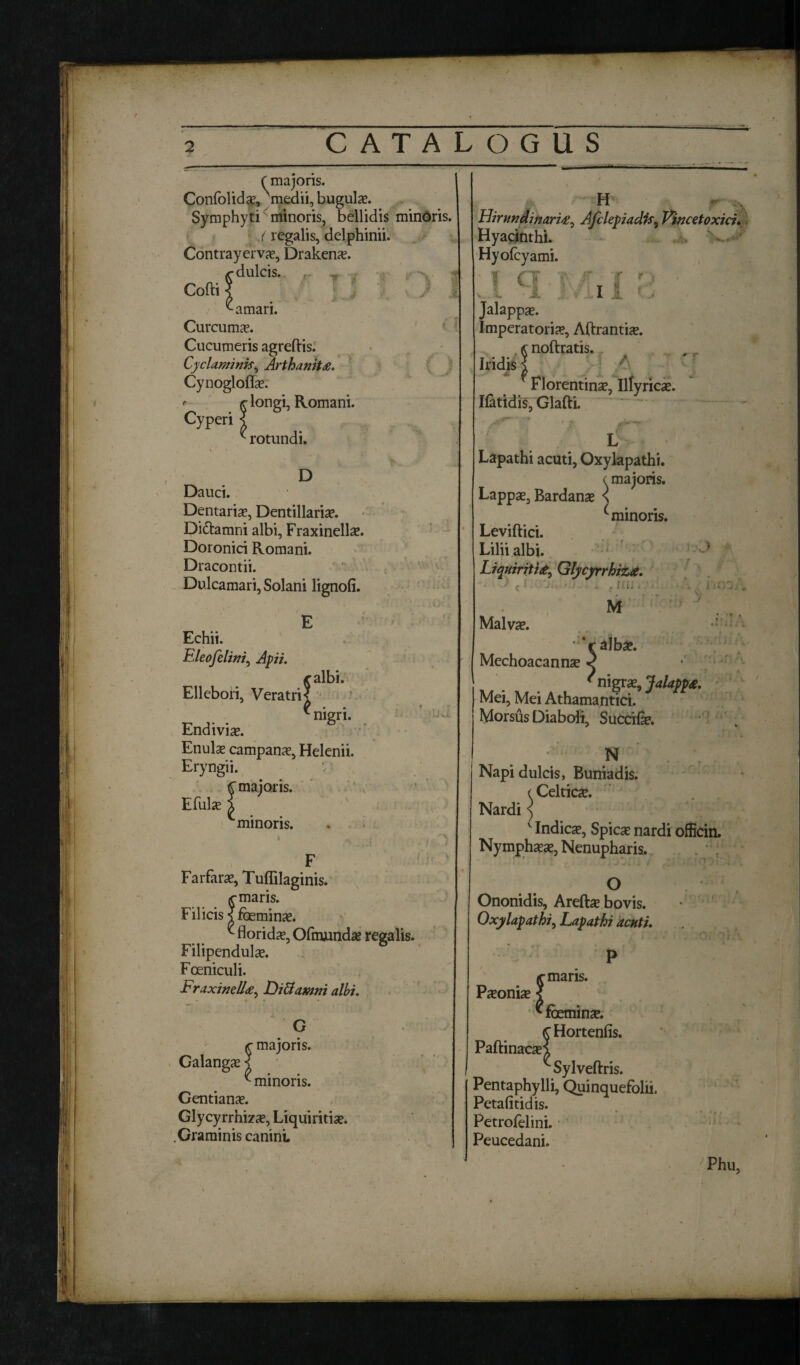 2 CATALOGUS
majoris.
Conſolidæ, medii, bugulæ.
Symphyti minoris, bellidis minoris.
regalis, delphinii.
Contrayervæ, Drakenæ.
dulcis.
Coſti
amari.
Curcumæ.
Cucumeris agreſtis.
Cyclaminis, Arthanitæ.
Cynogloſſæ.
longi, Romani.
Cyperi
rotundi.
D
Dauci.
Dentariæ, Dentillariæ.
Dictamni albi, Fraxinellæ.
Doronici Romani.
Dracontii.
Dulcamari, Solani lignoſi.
E
Echii.
Eleoſelini, Apii.
albi.
Ellebori, Veratri
nigri.
Endiviæ.
Enulæ campanæ, Helenii.
Eryngii.
majoris.
Eſulæ
minoris.
F
Farfaræ, Tuſſilaginis.
maris.
Filicis fœminæ.
floridæ, Oſmundæ regalis.
Filipendulæ.
Fœniculi.
Fraxinellæ, Dictamni albi.
G
majoris.
Galangæ
minoris.
Gentianæ.
Glycyrrhizæ, Liquiritiæ.
Graminis canini.
H
Hirundinariæ, Aſclepiadis, Vincetoxici.
Hyacinthi.
Hyoſcyami.
I
Jalappæ.
Imperatoriæ, Aſtrantiæ.
noſtratis.
Iridis
Florentinæ, Illyricæ.
Iſatidis, Glaſti.
L
Lapathi acuti, Oxylapathi.
majoris.
Lappæ, Bardanæ
minoris.
Leviſtici.
Lilii albi.
Liquiritiæ, Glycyrrhizæ.
M
Malvæ.
albæ.
Mechoacannæ
nigræ, Jalappæ.
Mei, Mei Athamantici.
Morsûs Diaboli, Succiſæ.
N
Napi dulcis, Buniadis.
Celticæ.
Nardi
Indicæ, Spicæ nardi officin.
Nymphææ, Nenupharis.
O
Ononidis, Areſtæ bovis.
Oxylapathi, Lapathi acuti.
P
maris.
Pæoniæ
fœminæ.
Hortenſis.
Paſtinacæ
Sylveſtris.
Pentaphylli, Quinquefolii.
Petaſitidis.
Petroſelini.
Peucedani.
Phu,